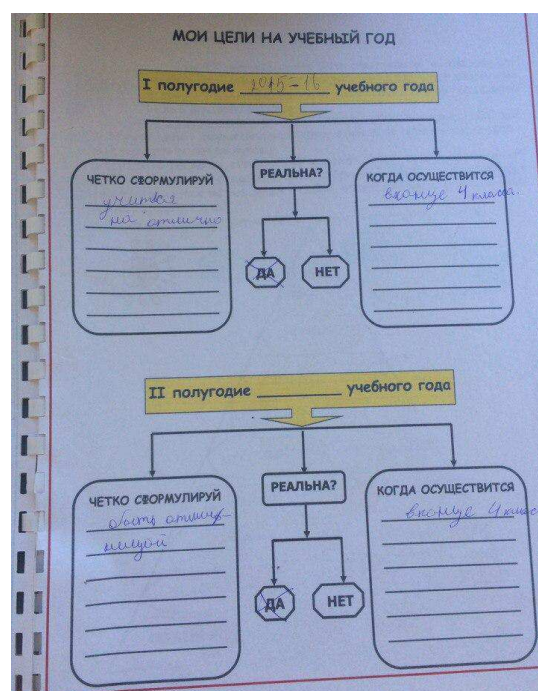 МОИ ЦЕЛИ НА УЧЕБНЫЙ ГОД
I полугодие 2015-16 учебного года
ЧЕТКО СФОРМУЛИРУЙ
учится
на отлично
РЕАЛЬНА?
ДА
НЕТ
КОГДА ОСУЩЕСТВИТСЯ
вконце 4 класса.
II полугодие ________ учебного года
ЧЕТКО СФОРМУЛИРУЙ
быть отлич-
ницой
РЕАЛЬНА?
ДА
НЕТ
КОГДА ОСУЩЕСТВИТСЯ
вконце 4 класс